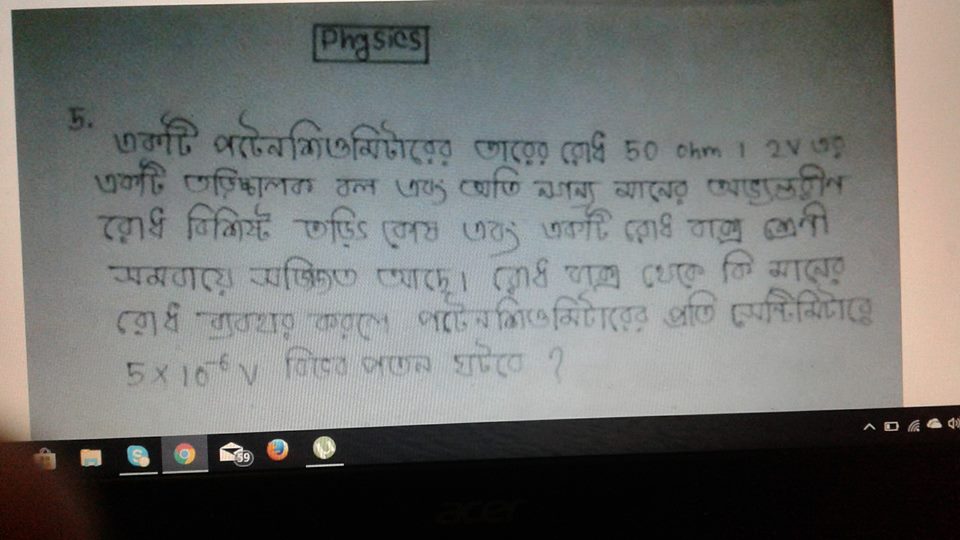 Physics
5.
একটি পটেনশিওমিটারের তারের রোধ 50 ohm । 2V এর
একটি তড়িচ্চালক বল এবং অতি নগন্য মানের অভ্যন্তরীন
রোধ বিশিষ্ট তড়িৎ কোষ এবং একটি রোধ বাক্স শ্রেণী
সমবায়ে সজ্জিত আছে। রোধ বাক্স থেকে কি মানের
রোধ ব্যবহার করলে পটেনশিওমিটারের প্রতি সেন্টিমিটারে
5×10⁻⁶ V বিভব পতন ঘটবে ?
59
acer